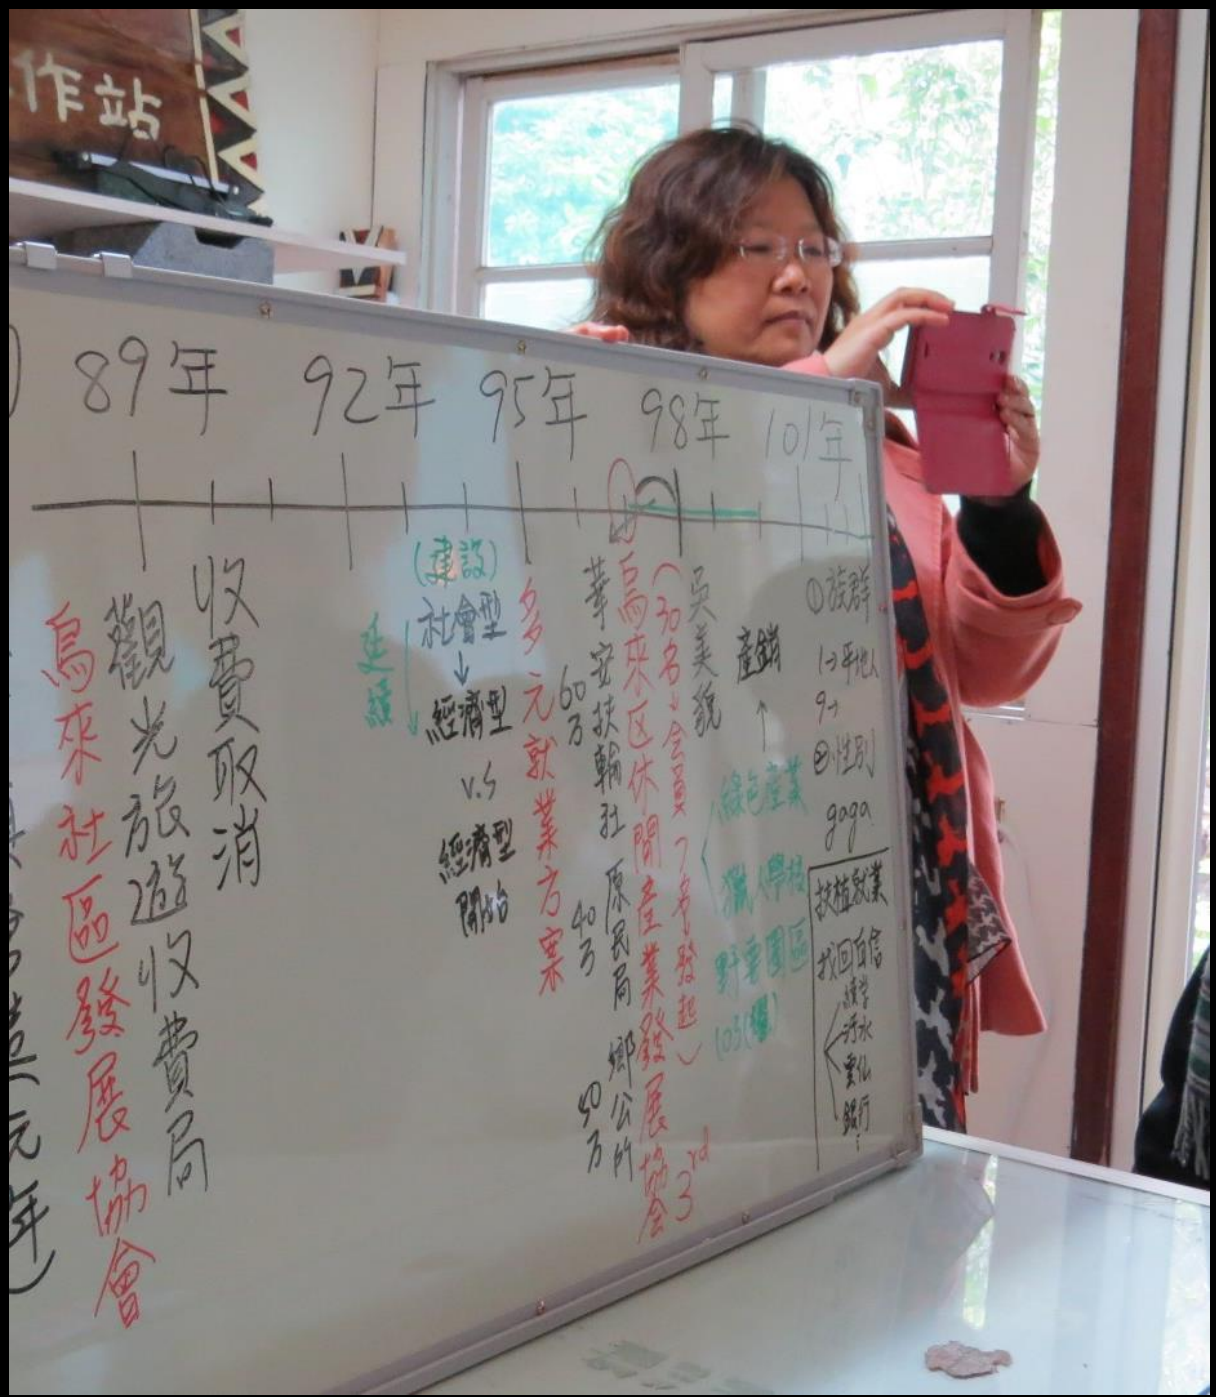 作站
89年
92年
95年
98年
101年
元年)
烏來社區發展協會
觀光旅遊收費局
收費取消
延續
(建設)
社會型
↓
經濟型
v.s
經濟型
開始
多元就業方案
60万
40万
華安扶輪社 原民局 鄉公所
烏來区休閒產業發展協会
(30名以会員7名發起)
3rd
吳美貌
產銷
↑
綠色產業
獵人學校
野菜園區
103(繼)
①族群
1→平地人
9→
②性別
gaga
扶植就業
找回自信
污水
雲仙
銀行